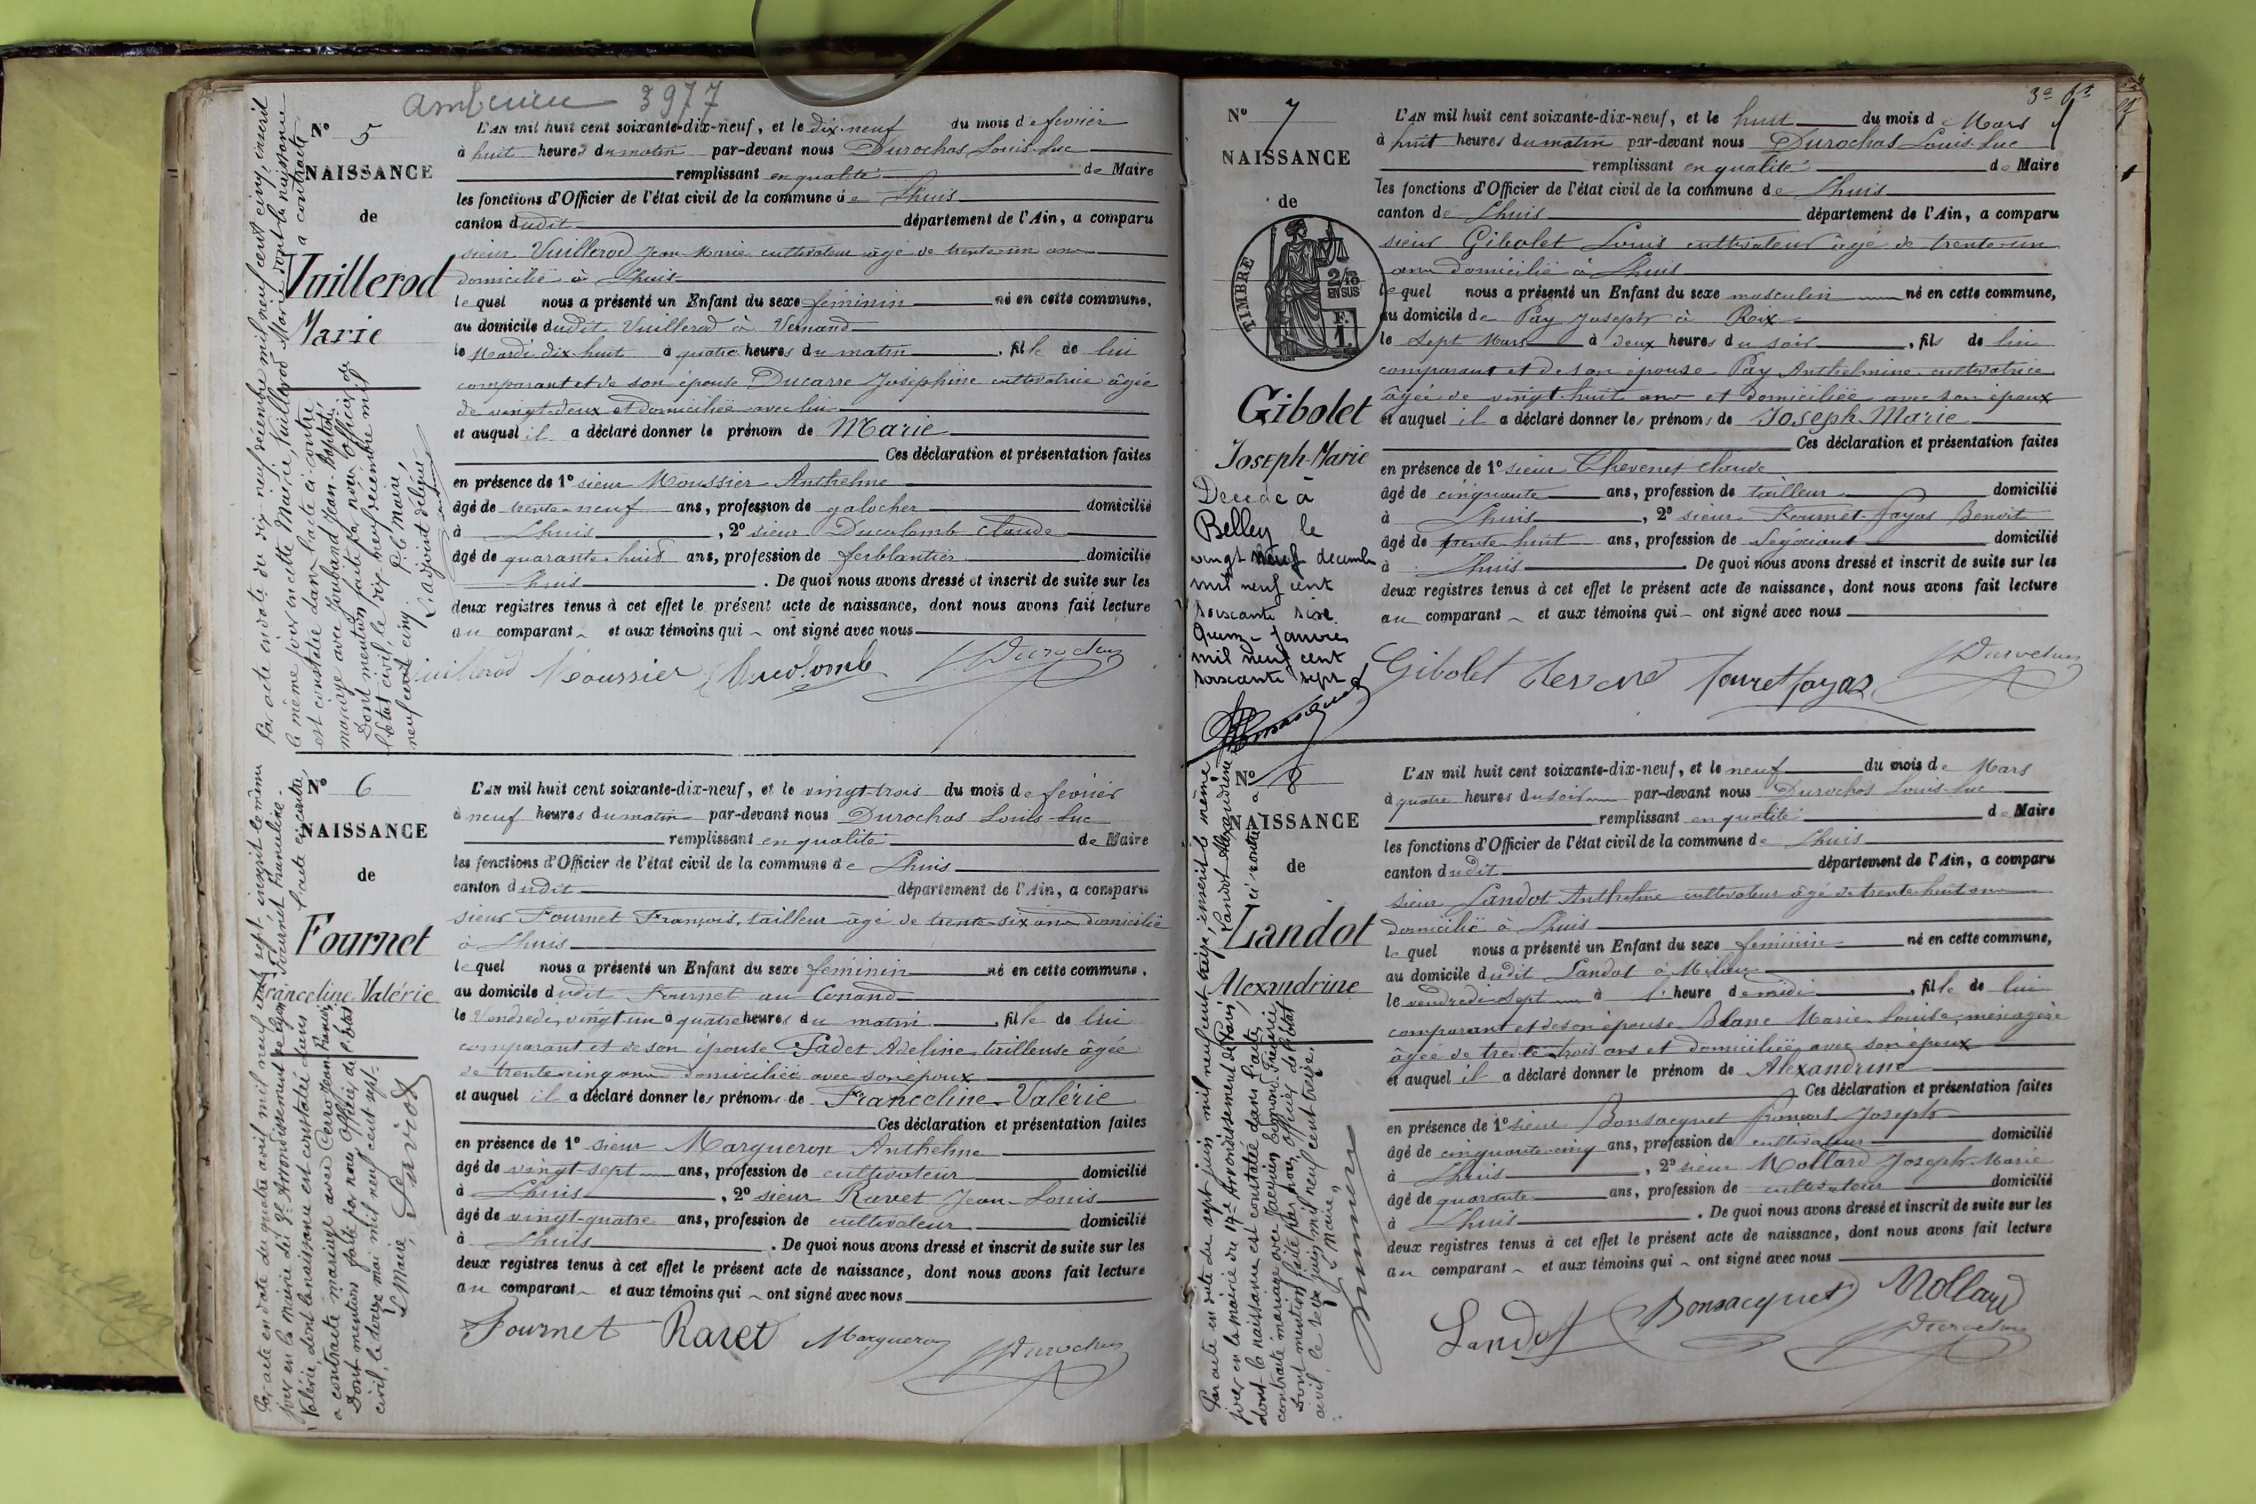 3977
N° 5
NAISSANCE
de
Vuillerod
Marie
L'AN mil huit cent soixante-dix-neuf, et le dix-neuf du mois de février
à huit heures du matin par-devant nous Durochas Louis-Luc
remplissant en qualité de Maire
les fonctions d'Officier de l'état civil de la commune de Lhuis
canton dudit département de l'Ain, a comparu
sieur Vuillerod Jean Marie cultivateur âgé de trente un ans
domicilié à Lhuis
lequel nous a présenté un Enfant du sexe féminin né en cette commune,
au domicile dudit Vuillerod à Vernand
le Mardi dix-huit à quatre heures du matin, fille de lui
comparant et de son épouse Ducarre Joséphine cultivatrice âgée
de vingt-deux et domiciliée avec lui
et auquel il a déclaré donner le prénom de Marie
Ces déclaration et présentation faites
en présence de 1° sieur Moussier Anthelme
âgé de trente-neuf ans, profession de galocher domicilié
à Lhuis, 2° sieur Ducolomb Claude
âgé de quarante-huit ans, profession de ferblantier domicilié
Lhuis. De quoi nous avons dressé et inscrit de suite sur les
deux registres tenus à cet effet le présent acte de naissance, dont nous avons fait lecture
au comparant et aux témoins qui ont signé avec nous
Vuillerod Moussier Ducolomb Durochas
Par acte en date du dix-neuf décembre mil neuf cent cinq, inscrit
le même jour en cette Mairie, Vuillerod Marie dont la naissance
est constatée dans l'acte ci-contre, a contracté
mariage avec Jouband Jean-Baptiste.
Dont mention faite par nous Officier de
l'état civil, le dix-neuf décembre mil
neuf cent cinq.
P. le Maire,
L'adjoint délégué
N° 6
NAISSANCE
de
Fournet
Franceline Valérie
L'AN mil huit cent soixante-dix-neuf, et le vingt-trois du mois de février
à neuf heures du matin par-devant nous Durochas Louis-Luc
remplissant en qualité de Maire
les fonctions d'Officier de l'état civil de la commune de Lhuis
canton dudit département de l'Ain, a comparu
sieur Fournet François, tailleur âgé de trente-six ans domicilié
à Lhuis
lequel nous a présenté un Enfant du sexe féminin né en cette commune,
au domicile dudit Fournet au Conand
le Vendredi vingt-un à quatre heures du matin, fille de lui
comparant et de son épouse Fadet Adeline tailleuse âgée
de trente-cinq ans domiciliée avec son époux
et auquel il a déclaré donner les prénoms de Franceline-Valérie
Ces déclaration et présentation faites
en présence de 1° sieur Margueron Anthelme
âgé de vingt-sept ans, profession de cultivateur domicilié
à Lhuis, 2° sieur Ravet Jean-Louis
âgé de vingt-quatre ans, profession de cultivateur domicilié
à Lhuis. De quoi nous avons dressé et inscrit de suite sur les
deux registres tenus à cet effet le présent acte de naissance, dont nous avons fait lecture
au comparant et aux témoins qui ont signé avec nous
Fournet Ravet Margueron Durochas
Par acte en date du quatre avril mil neuf cent sept, inscrit le même
jour en la mairie du 3e Arrondissement de Lyon, Fournet Franceline-
Valérie, dont la naissance est constatée dans l'acte ci-contre,
a contracté mariage avec Jean
Dont mention faite par nous Officier de l'état
civil, le treize mai mil neuf cent sept.
Le Maire, Savoy
3e ft
N° 7
NAISSANCE
de
TIMBRE
2/10
EN SUS
F.
1.
Gibolet
Joseph-Marie
Décédé à
Belley le
vingt neuf décembre
mil neuf cent
soixante six.
Quinze Janvier
mil neuf cent
soixante sept
L'AN mil huit cent soixante-dix-neuf, et le huit du mois de Mars
à huit heures du matin par-devant nous Durochas Louis-Luc
remplissant en qualité de Maire
les fonctions d'Officier de l'état civil de la commune de Lhuis
canton de Lhuis département de l'Ain, a comparu
sieur Gibolet Louis cultivateur âgé de trente-un
ans domicilié à Lhuis
lequel nous a présenté un Enfant du sexe masculin né en cette commune,
au domicile de Pay Joseph à Rix
le Sept Mars à deux heures du soir, fils de lui
comparant et de son épouse Pay Anthelmine cultivatrice
âgée de vingt-huit ans et domiciliée avec son époux
et auquel il a déclaré donner les prénoms de Joseph-Marie
Ces déclaration et présentation faites
en présence de 1° sieur Thevenet Claude
âgé de cinquante ans, profession de tailleur domicilié
à Lhuis, 2° sieur Fournet-Fayas Benoit
âgé de trente-huit ans, profession de Négociant domicilié
à Lhuis. De quoi nous avons dressé et inscrit de suite sur les
deux registres tenus à cet effet le présent acte de naissance, dont nous avons fait lecture
au comparant et aux témoins qui ont signé avec nous
Gibolet Fournet Fayas Durochas
N° 8
NAISSANCE
de
Landot
Alexandrine
L'AN mil huit cent soixante-dix-neuf, et le neuf du mois de Mars
à quatre heures du soir par-devant nous Durochas Louis-Luc
remplissant en qualité de Maire
les fonctions d'Officier de l'état civil de la commune de Lhuis
canton dudit département de l'Ain, a comparu
sieur Landot Anthelme cultivateur âgé de trente-huit ans
domicilié à Lhuis
lequel nous a présenté un Enfant du sexe féminin né en cette commune,
au domicile dudit Landot à Milieu
le vendredi sept à 1 heure de midi, fille de lui
comparant et de son épouse Blanc Marie Louise, ménagère
âgée de trente-trois ans et domiciliée avec son époux
et auquel il a déclaré donner le prénom de Alexandrine
Ces déclaration et présentation faites
en présence de 1° sieur Bonsacquet François Joseph
âgé de cinquante-cinq ans, profession de cultivateur domicilié
à Lhuis, 2° sieur Mollard Joseph-Marie
âgé de quarante ans, profession de cultivateur domicilié
à Lhuis. De quoi nous avons dressé et inscrit de suite sur les
deux registres tenus à cet effet le présent acte de naissance, dont nous avons fait lecture
au comparant et aux témoins qui ont signé avec nous
Landot Bonsacquet Mollard Durochas
Par acte en date du sept juin mil neuf cent treize, inscrit le même
jour en la mairie du 17e Arrondissement de Paris, Landot Alexandrine
dont la naissance est constatée dans l'acte ci-contre a
contracté mariage avec Edmond Frédéric
Dont mention faite par nous Officier de l'état
civil, le seize juin mil neuf cent treize.
Le Maire,